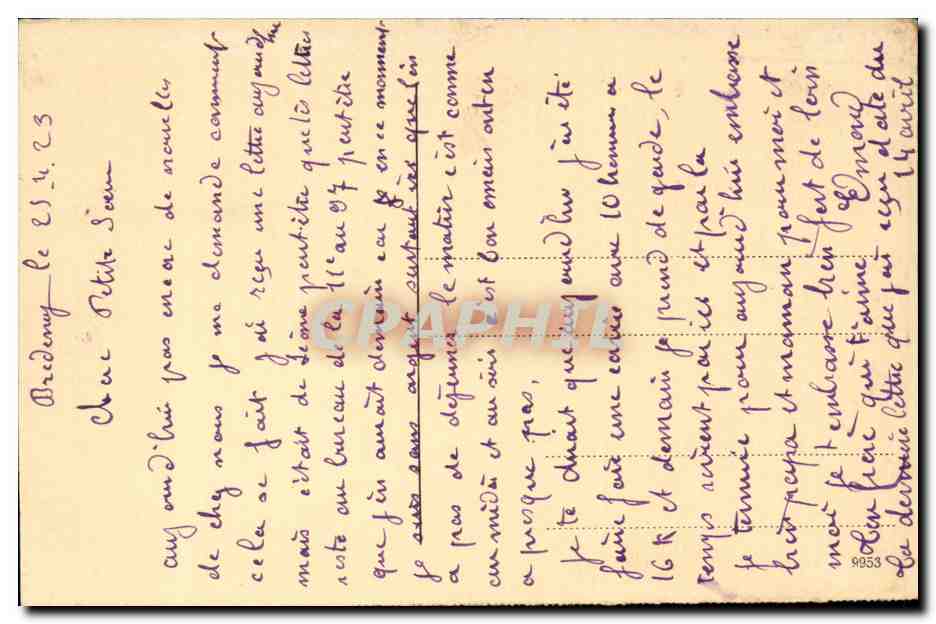 Bredeney le 25-4.23
Chere Petite Sœur
aujourd'hui pas encore de nouvelles
de chez nous je me demande comment
cela se fait j'ai reçu une lettre aujourd'hui
mais c'était de Léone peut être que les lettres
reste au bureau de la 11e au 97 peut être
que j'en aurait demain car en ce moment
je suis sans argent surtout ici que l'on
a pas de déjeuner le matin c'est comme
au midi et au soir c'est bon mais on en
a presque pas.
Je te dirait que aujourd'hui j'ai été
faire faire une course avec 10 hommes a
16 K et demain je prend de garde, le
temps revient pareil et par la
je termine pour aujourd'hui embrasse
bien papa et maman pour moi et
moi je t'embrasse bien fort de loin
Ton frère qui t'aime Emond
La dernière lettre que j'ai reçu date du
14 avril
9953
CPAPHIL